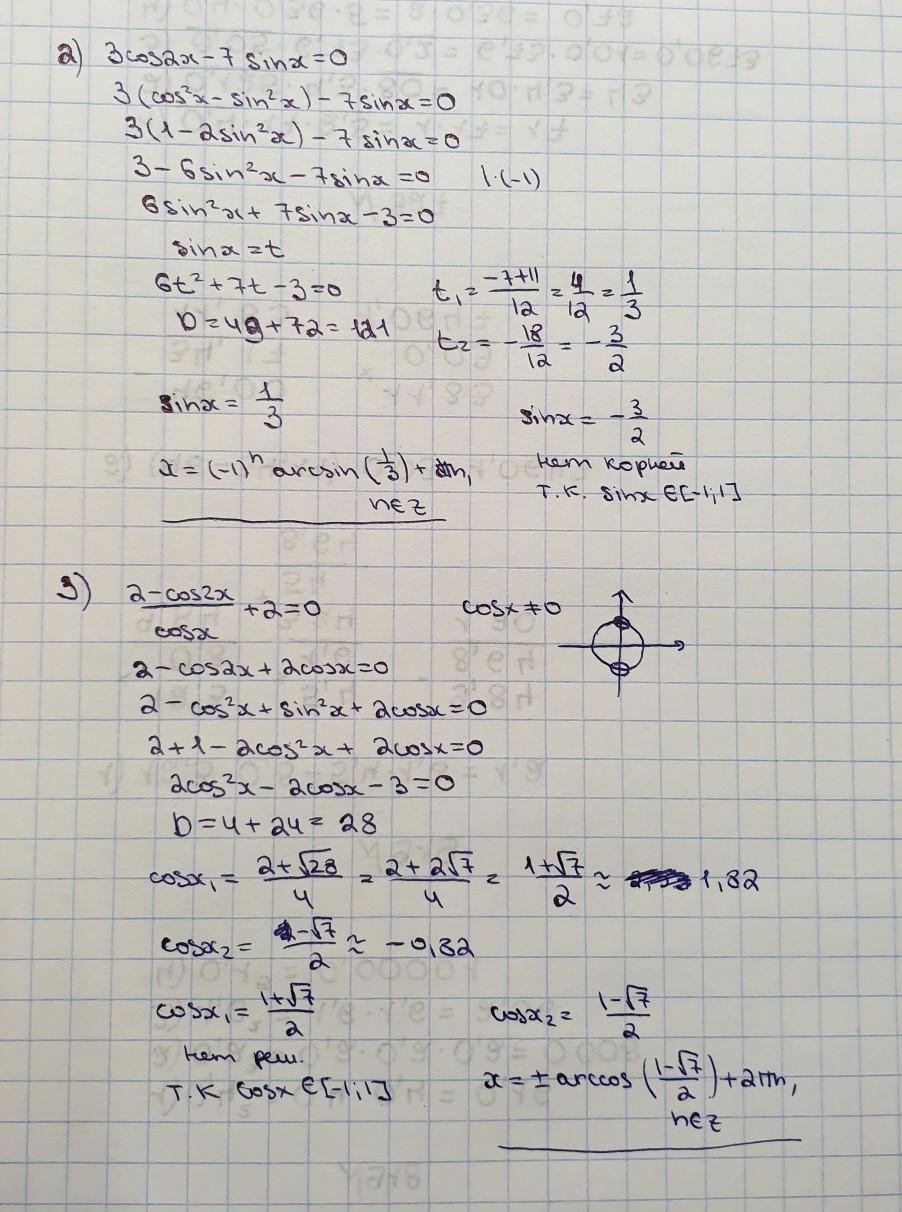 2) 3cos2x - 7 sinx = 0
3(cos²x - sin²x) - 7sinx = 0
3(1 - 2sin²x) - 7 sinx = 0
3 - 6sin²x - 7sinx = 0 |·(-1)
6sin²x + 7sinx - 3 = 0
sinx = t
6t² + 7t - 3 = 0
D = 49 + 72 = 121
t₁ = (-7+11)/12 = 4/12 = 1/3
t₂ = -18/12 = -3/2
sinx = 1/3
x = (-1)ⁿ arcsin(1/3) + πn,
n∈Z
sinx = -3/2
нет корней
т.к. sinx ∈ [-1;1]
3) (2 - cos2x)/cosx + 2 = 0
cosx ≠ 0
2 - cos2x + 2cosx = 0
2 - cos²x + sin²x + 2cosx = 0
2 + 1 - 2cos²x + 2cosx = 0
2cos²x - 2cosx - 3 = 0
D = 4 + 24 = 28
cosx₁ = (2+√28)/4 = (2+2√7)/4 = (1+√7)/2 ≈ 1,82
cosx₂ = (1-√7)/2 ≈ -0,82
cosx₁ = (1+√7)/2
нет реш.
т.к cosx ∈ [-1;1]
cosx₂ = (1-√7)/2
x = ± arccos ((1-√7)/2) + 2πn,
n∈Z